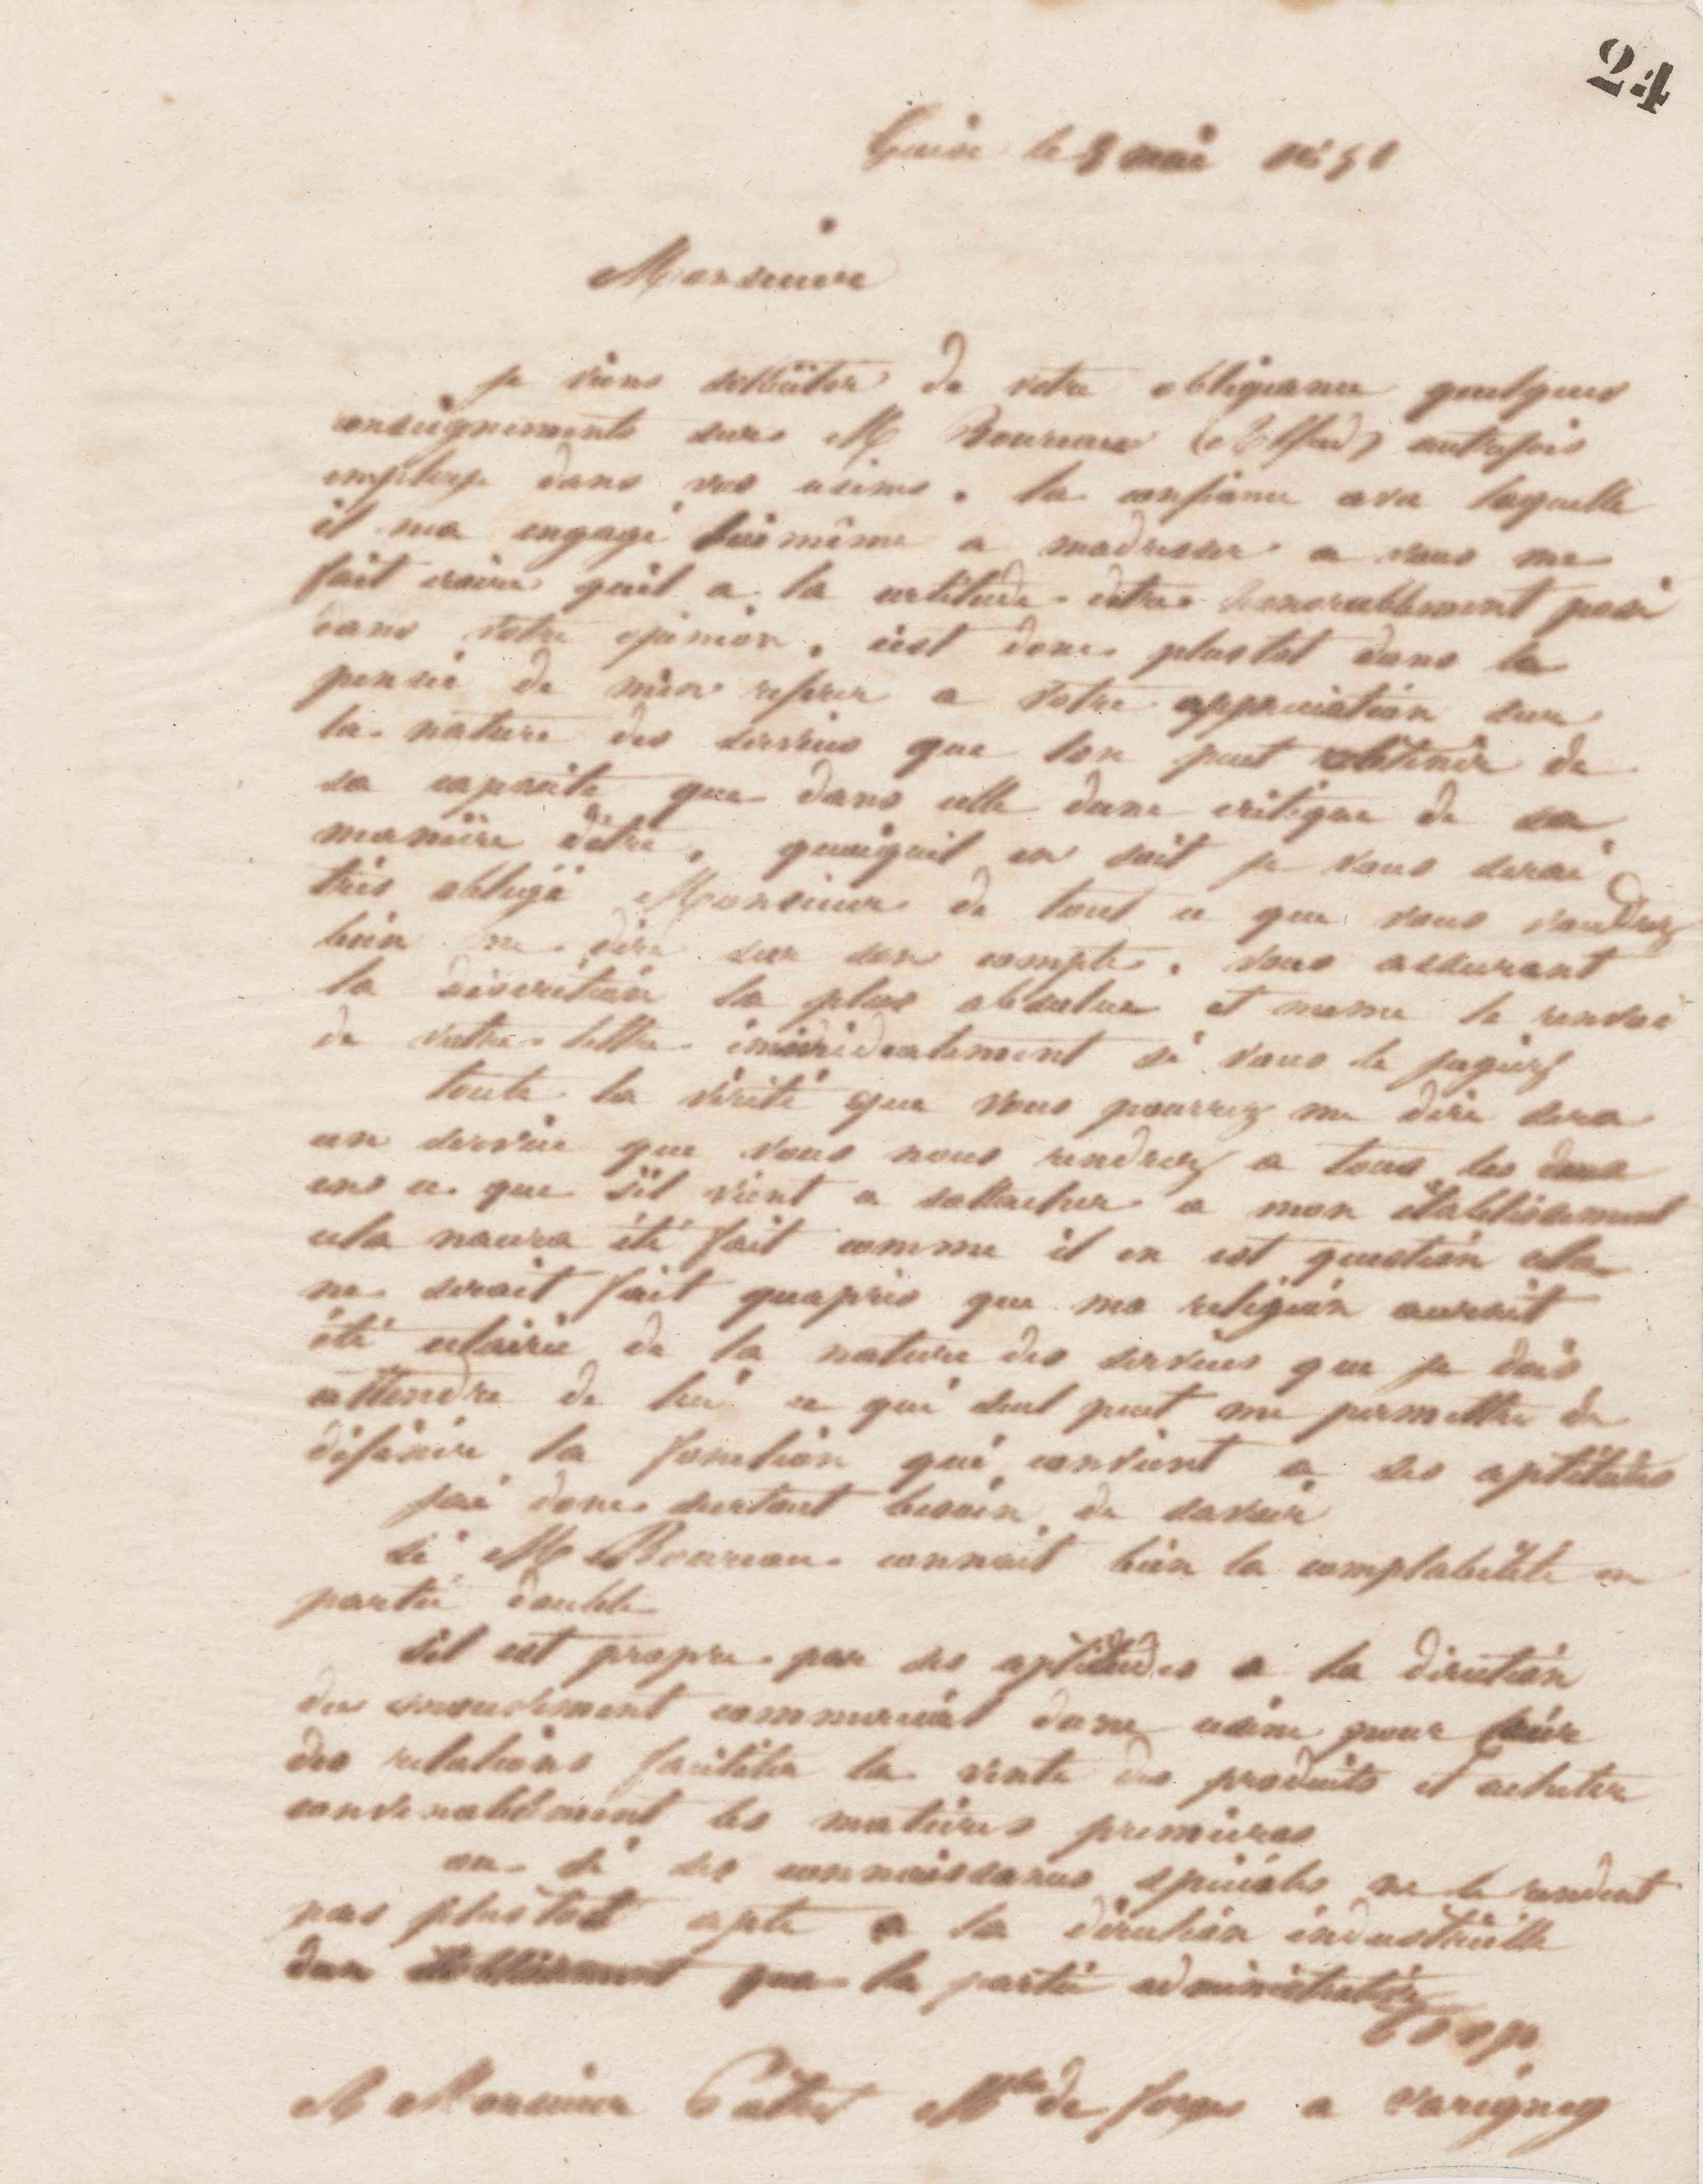 24
Guise le 8 mai 1851
Monsieur
je viens solliciter de votre obligeance quelques
renseignements sur M Boureau (Alfred) autrefois
employe dans vos usines. la confiance avec laquelle
il ma engagé lui même a madresser a vous me
fait croire quil a la certitude detre honorablement posé
dans votre opinion. cest donc plustot dans la
pensée de men referer a votre appreciation sur
la nature des services que lon peut obtenir de
sa capacite que dans celle dune critique de sa
manière detre, quoiquil en soit je vous serai
très obligé Monsieur de tout ce que vous voudrez
bien me dire sur son compte. vous assurant
la discretion la plus absolue et meme le renvoi
de votre lettre immédiatement si vous le jugiez
toute la vérité que vous pourrez me dire sera
un service que vous nous rendrez a tous les deux
en ce que sil vient a sattacher a mon établissement
cela naura été fait comme il en est question cela
ne serait fait quapres que ma religion aurait
été eclairée de la nature des services que je dois
attendre de lui ce qui seul peut me permettre de
définir la fonction qui convient a ses aptitudes
jai donc surtout besoin de savoir
si M Boureau connait bien la comptabilité en
partie double
sil est propre par ses aptitudes a la direction
du mouvement commercial dune usine pour
des relations faciliter la vente des produits et acheter
convenablement les matières premières
ou si ses connaissances spéciales ne le rendent
pas plustot apte a la direction industrielle
dun établissement que la partie administrative
A Monsieur Patret Mtre de forges a Varigney